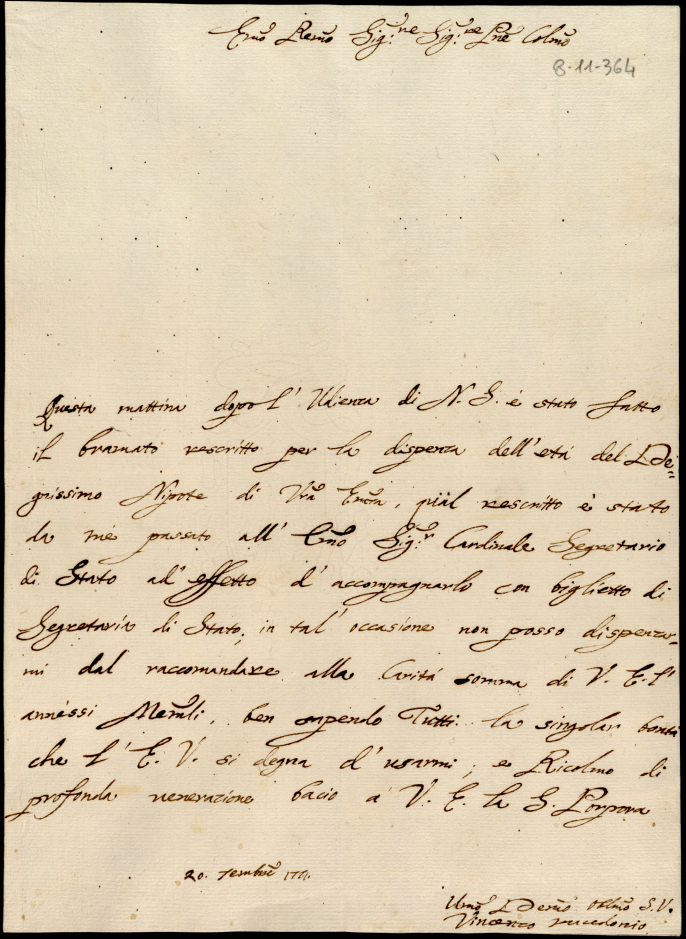 Emo Remo Sig:ne Sig:ne Pne Colmo
8-11-364
Questa mattina dopo l' Udienza di N. S. é stato fatto
il bramato rescritto per la dispenza dell' etá del De=
gnissimo Nipote di Vra Emza, qúal rescritto é stato
da me passato all' Emo Sig:r Cardinale Segretario
di Stato ad' effetto d' accompagnarlo con biglietto di
Segretaría di Stato; in tal' occasione non posso dispenzar=
mi dal raccomandare alla Caritá somma di V. E. l'
annessi Memli, ben sapendo Tutti la singolar bontá
che l' E. V. si degna d' usarmi; e Ricolmo di
profonda venerazione bacio a V. E. la S. Porpora
20.
Vincenzo Macedonio